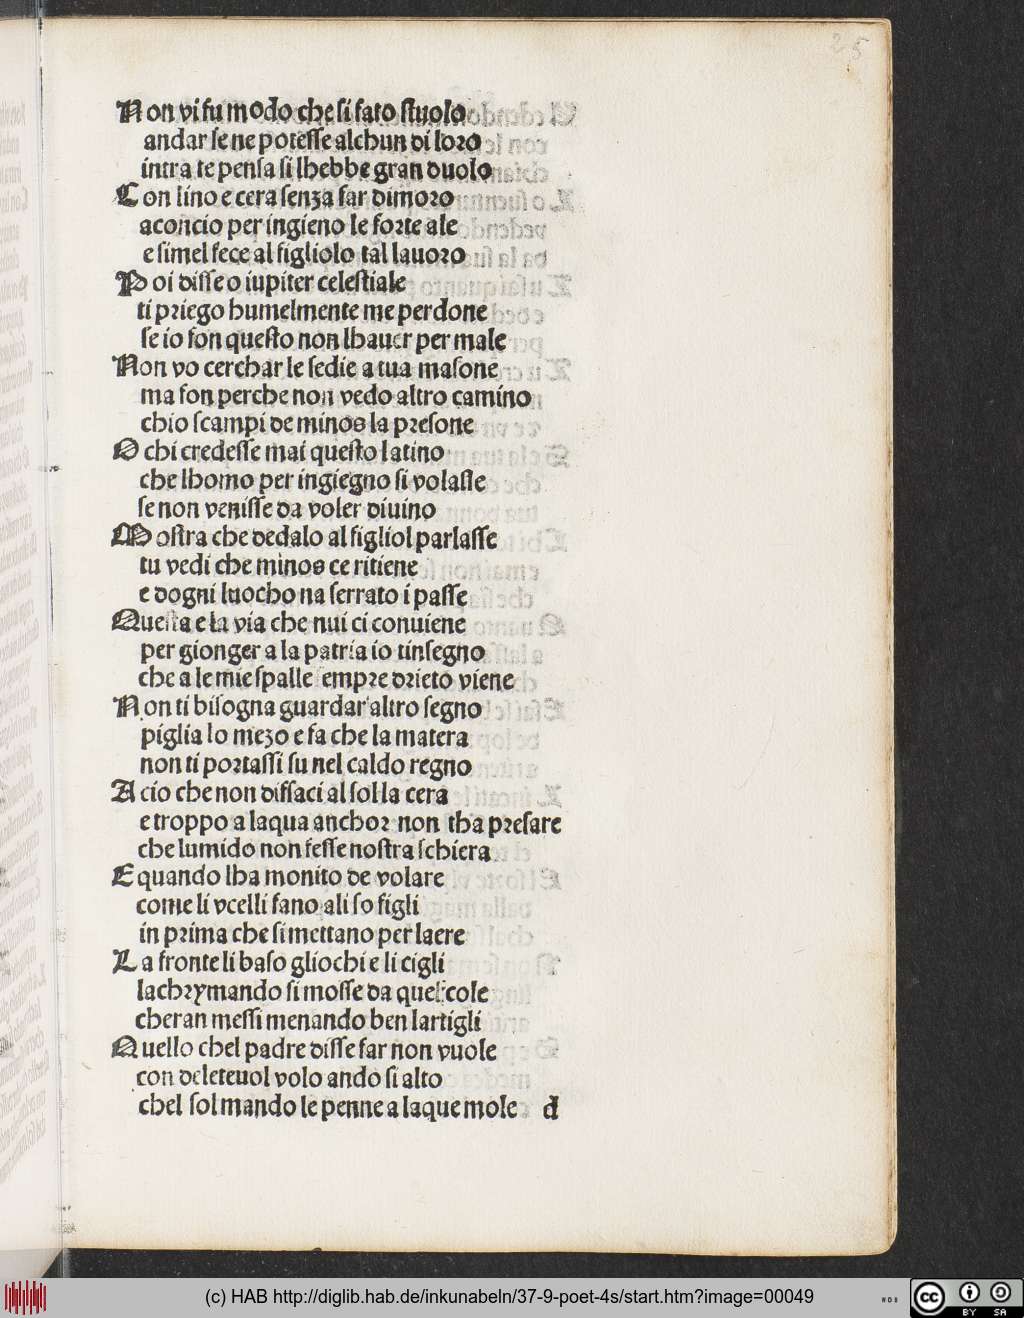 25
Non vi fu modo che si fato stuolo
andar se ne potesse alchun di loro
intra te pensa si lhebbe gran duolo
Con lino e cera senza far dimoro
aconcio per ingieno le forte ale
e simel fece al figliolo tal lauoro
Poi disse o iupiter celestiale
ti priego humelmente me perdone
se io fon questo non lhauer per male
Non vo cerchar le sedie a tua masone
ma fon perche non vedo altro camino
chio scampi de minos la presone
O chi credesse mai questo latino
che lhomo per ingiegno si volasse
se non venisse da voler diuino
Mostra che dedalo al figliol parlasse
tu vedi che minos ce ritiene
e dogni luocho na serrato i passe
Questa e la via che nui ci conuiene
per gionger a la patria io tinsegno
che a le mie spalle empre drieto viene
Non ti bisogna guardar altro segno
piglia lo mezo e fa che la matera
non ti portassi su nel caldo regno
Acio che non disfaci al sol la cera
e troppo a laqua anchor non tha presare
che lumido non fesse nostra schiera
E quando lha monito de volare
come li vcelli fano ali so figli
in prima che si mettano per laere
La fronte li baso gliochi e li cigli
lachrymando si mosse da quel cole
cheran messi menando ben lartigli
Quello chel padre disse far non vuole
con deleteuol volo ando si alto
chel sol mando le penne a laque mole d
(c) HAB http://diglib.hab.de/inkunabeln/37-9-poet-4s/start.htm?image=00049
cc BY SA